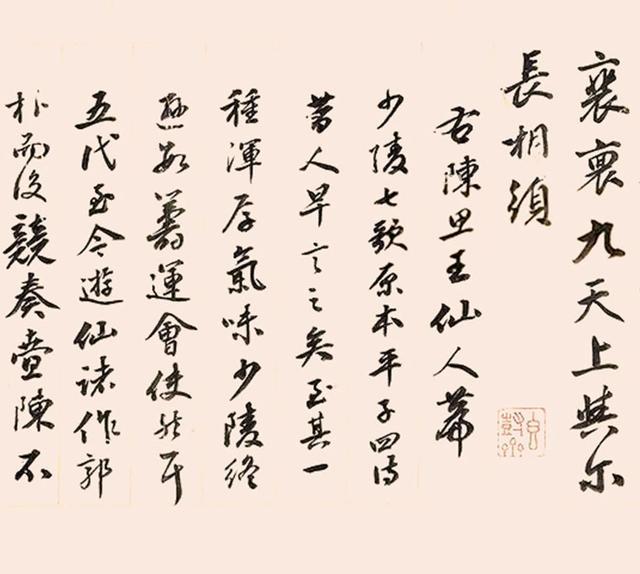 裵褱九天上與尔
長相須
右陳思王仙人篇
少陵七歌原本平子四詩
昔人早言之矣至其一
種渾厚氣味少陵終
遜數籌運會使然耳
五代至今遊仙諸作郭
朴而後競奏陳不